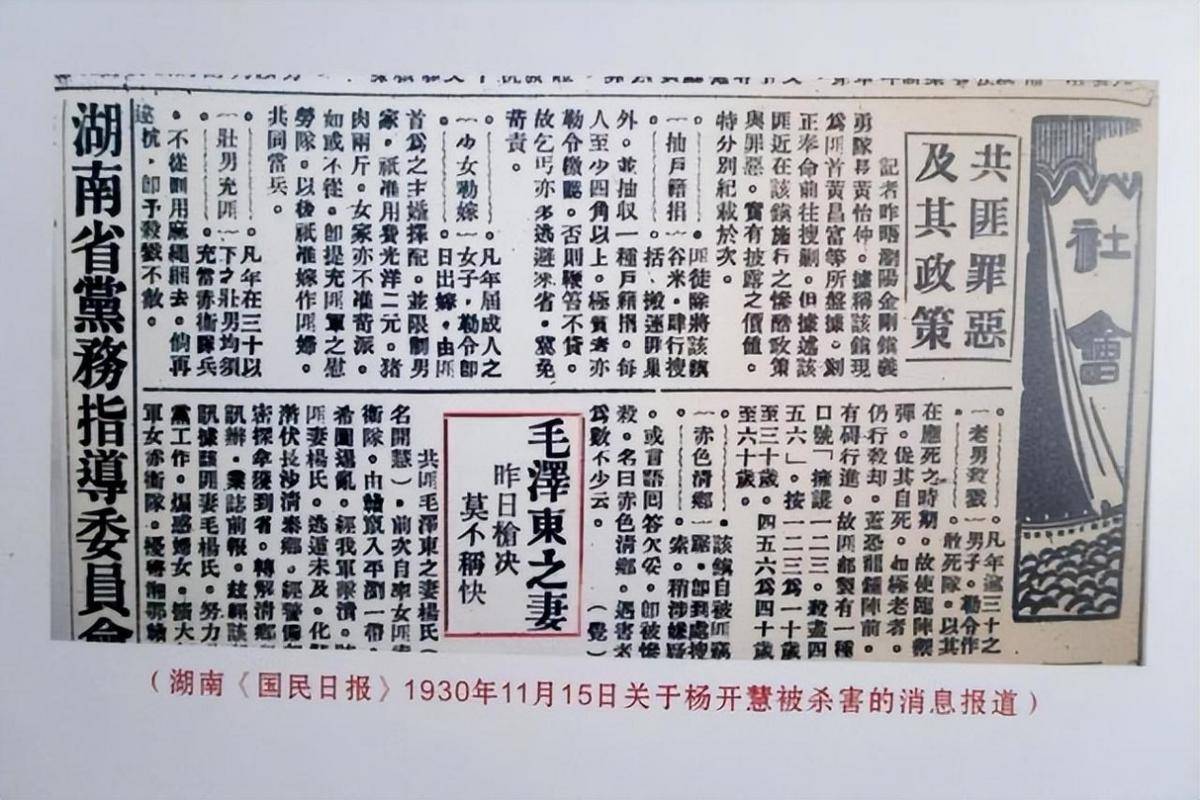 社會
共匪罪惡
及其政策
記者昨晤瀏陽金剛鎮義
勇隊長黃怡仲。據稱該鎮現
為匪首黃昌富等所盤據。刻
正奉命前往搜剿。但據述該
匪近在該鎮施行之慘酷政策
與罪惡。實有披露之價値。
特分別紀載於次。
匪徒除將該鎮
抽戶籍捐 谷米。肆行搜
括。搬運匪巢
外。並抽収一種戶籍捐。每
人至少四角以上。極貧者亦
勒令繳。否則鞭笞不貸。
故乞丐亦多逃避來省。冀免
苛責。
凡年屆成人之
少女勒嫁 女子。勒令即
日出嫁。由匪
首爲之主婚擇配。並限制男
家。祇准用費光洋二元。猪
肉兩斤。女家亦不准苛派。
如或不從。即提充匪軍之慰
勞隊。以後祇准嫁作匪婦。
共同當兵。
凡年在三十以
壯男充匪 下之壯男均須
充當赤衛隊兵
。不從則用麻繩綑去。倘再
違抗。即予殺戮不赦。
凡年逾三十之
老男殺戮 男子。勒令作
敢死隊。以其
在應死之時期。故使臨陣觀
彈。促其自死。如極老者。
仍行殺却。蓋恐龍鍾陣前。
有碍行進。故匪都製有一種
口號「擁護一二三。殺盡四
五六」。按一二三爲一十歲
至三十歲。四五六爲四十歲
至六十歲。
該鎮自被匪竊
赤色清鄉 踞。即到處搜
索。稍涉嫌疑
。或言語囘答欠妥。即被慘
殺。名曰赤色清鄉。遇害者
爲數不少云。（覺）
毛澤東之妻
昨日槍決
莫不稱快
共匪毛澤東之妻楊氏（
名開慧）。前次自率女匪
衛隊。由贛竄入平瀏一帶
希圖擾亂。經我軍擊潰。
匪妻楊氏。逃遁未及。化
潛伏長沙清泰鄉。經警備
密探拿獲到省。轉解清鄉
訊辦。業誌前報。茲經該
訊據該匪妻毛楊氏。努力
黨工作。煽惑婦女。擴大
軍女赤衛隊。擾害湘鄂贛
湖南省黨務指導委員會
（湖南《国民日报》1930年11月15日关于杨开慧被杀害的消息报道）